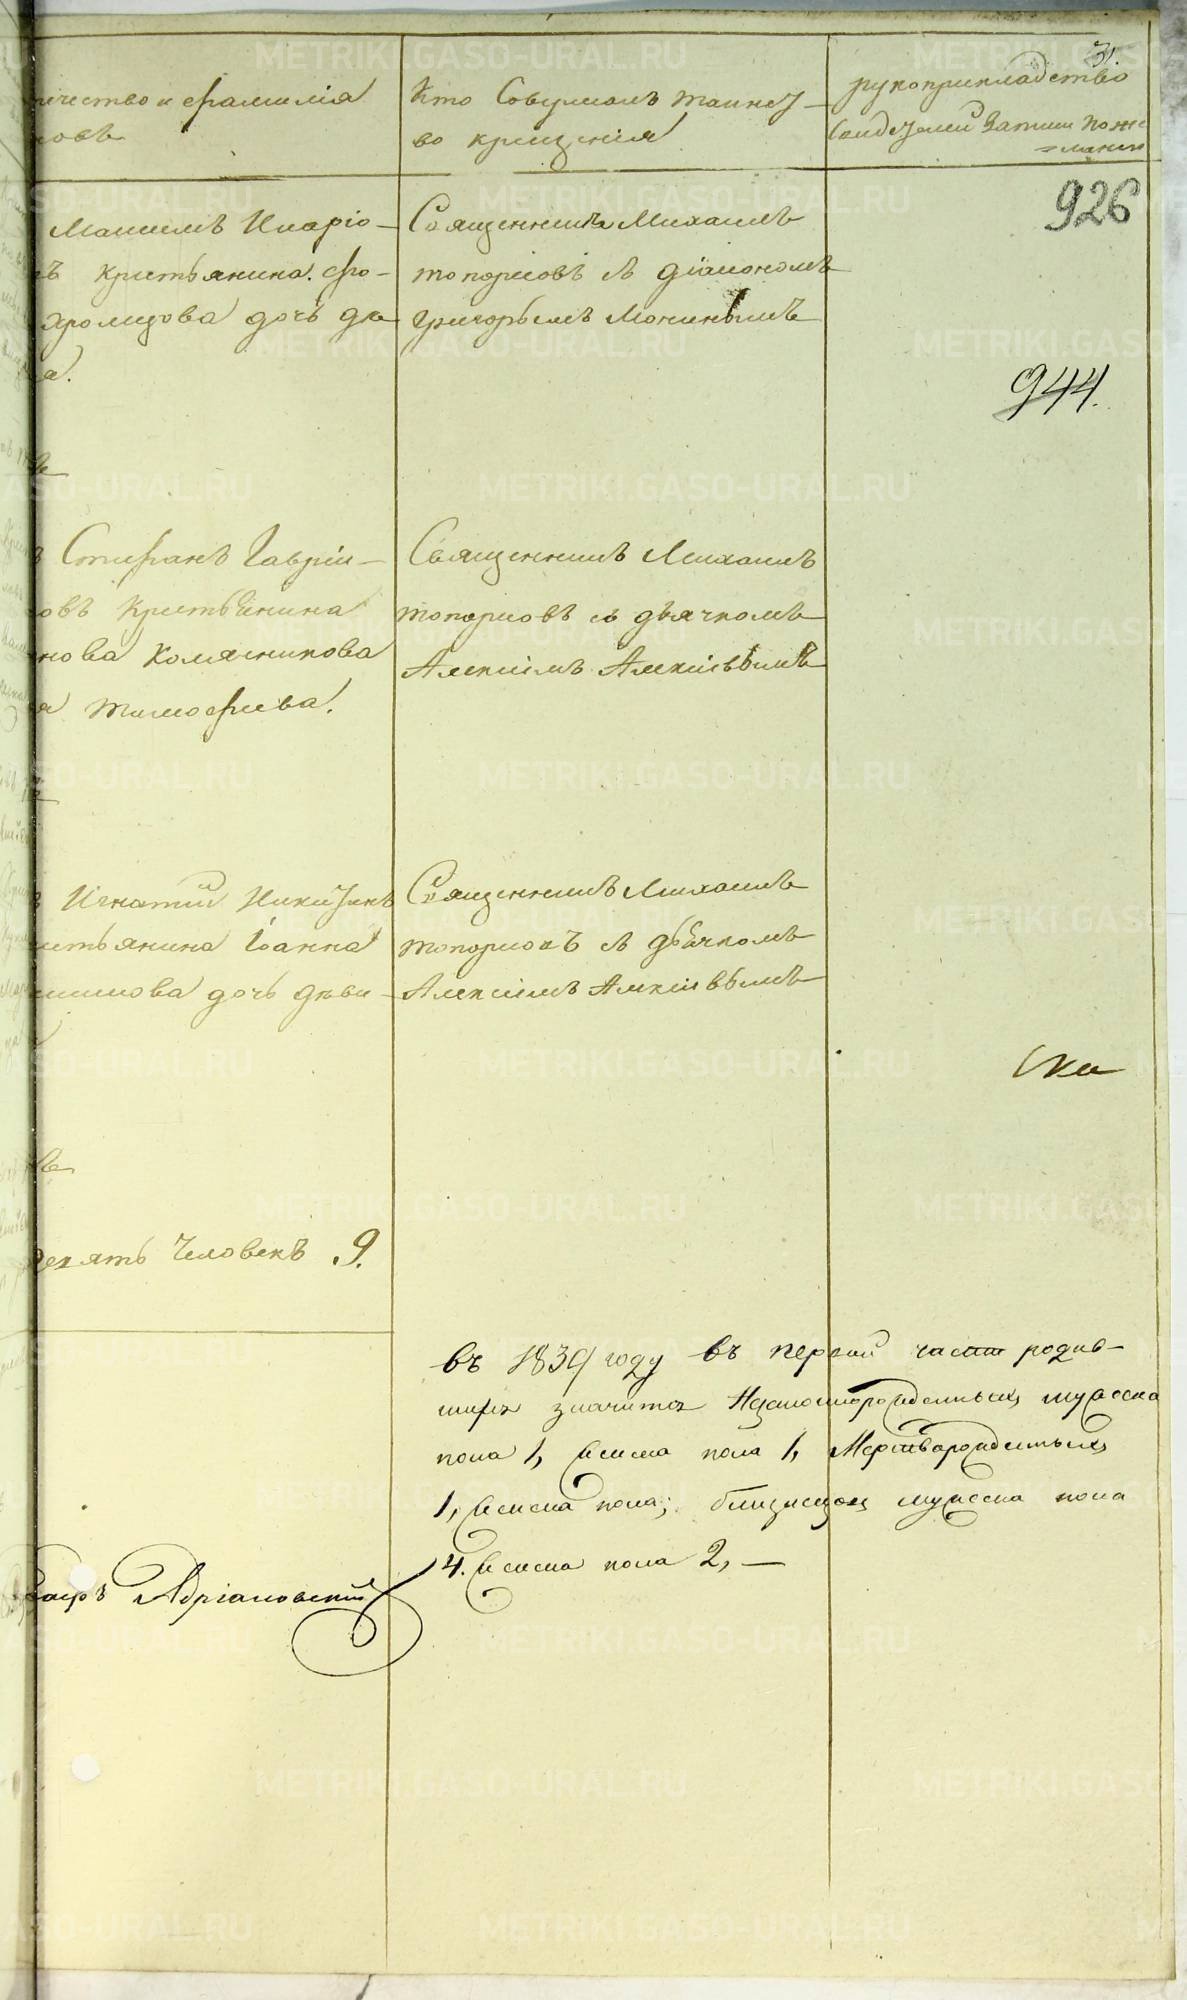 31.
чество и фамилія
новъ
Кто Совершалъ таинст-
во крещенія
рукоприкладство
Свидетелей Записи по же
=ланію
926
Максимъ Иларіо-
Крестьянина
Хромцова дочь де
а.
Священникъ Михаилъ
топорковъ съ діакономъ
Григорьемъ Мокинымъ
944.
Стефанъ Гаврии-
овъ Крестьянина
нова Колясникова
Тимофеева.
Священникъ Михаилъ
топорковъ съ дьячкомъ
Алексіемъ Алексіевымъ
Игнатій Никитинъ
естьянина Іоанна
шимова дочь деви-
Священникъ Михаилъ
топорковъ съ дьячкомъ
Алексіемъ Алексіевымъ
девять Человекъ 9.
въ 1839 году въ первой части родив-
шихся значится Незаконнорожденныхъ мужеска
пола 1, женска пола 1, Мертворожденныхъ
1, женска пола; близнецовъ мужеска пола
4. женска пола 2, —
Адріановскій
METRIKI.GASO-URAL.RU